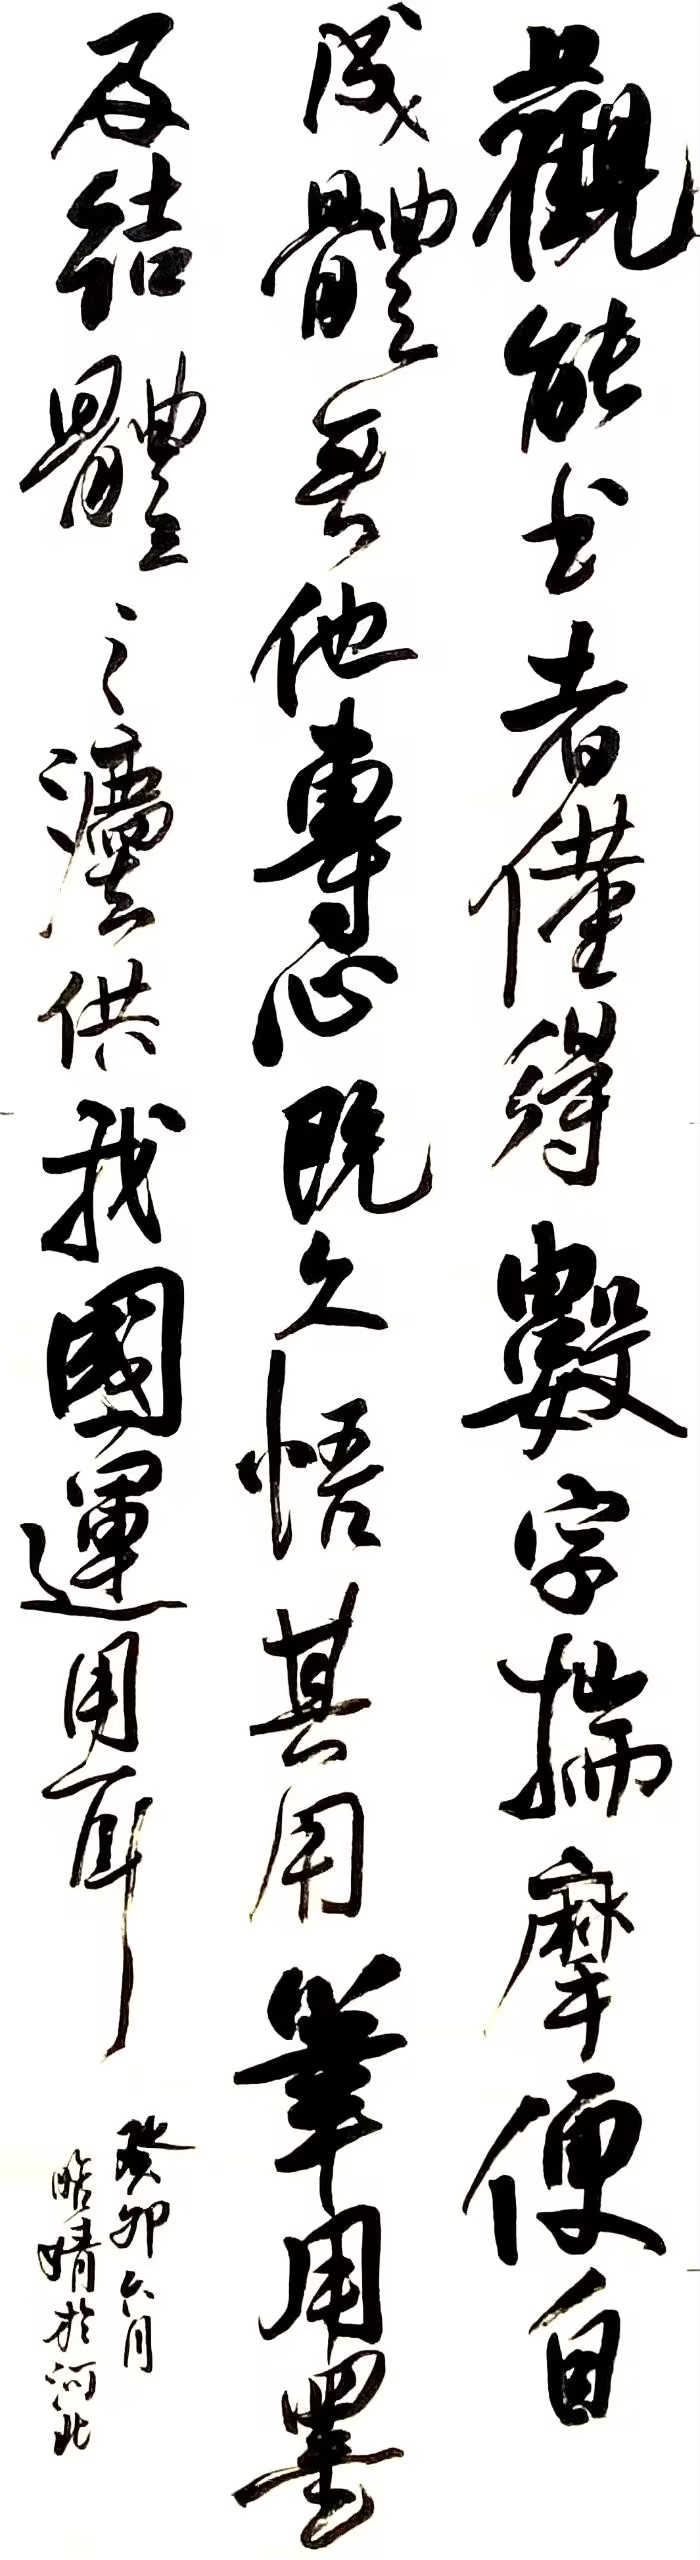 觀能书者僅得數字揣摩便自
成體無他專心既久悟其用筆用墨
及結體之灋供我國運用耳
癸卯六月
晧婧於河北